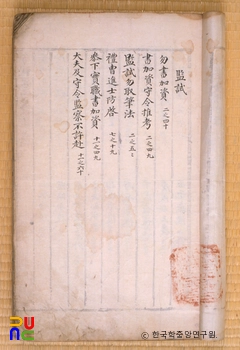 監試
勿書加資 二之四十
書加資守令推考 二之四九
監試勿取筆法 二之五二
禮曹進士防啓 七之十九
參下實職書加資 十一之四九
大夫及守令監察不許赴 十二之六十
ⓒ한국학중앙연구원.